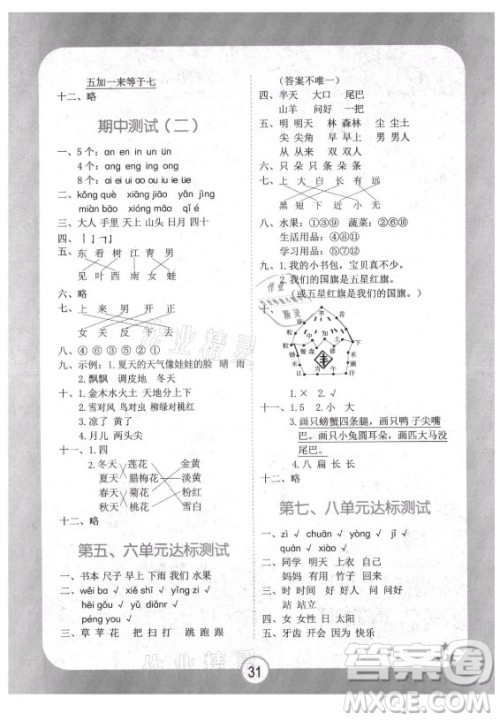 五加一来等于七
十二、略
期中测试（二）
一、5 个：an en in un ün
4 个：ang eng ing ong
8 个：ai ei ui ao ou iu ie üe
二、kǒng què xiāng jiāo yǎn jìng
miàn bāo xióng māo qǐ é
三、大人 手里 天上 山头 日月 四十
五、东 看 树 江 青 男
见 叶 西 南 女 蛙
六、略
七、上 来 男 开 正
女 关 反 下 去
八、④ ⑥ ③ ① ② ⑤
九、示例：1.夏天的天气像娃娃的脸 晴 雨
2.飘飘 调皮地 冬天
十、1.金木水火土 天地分上下
2.雪对风 鸟对虫 柳绿对桃红
3.前 水
4.月儿 两头尖
十一、1.四
2.冬天 莲花 金黄
夏天 腊梅花 淡黄
春天 菊花 粉红
秋天 桃花 雪白
十二、略
第五、六单元达标测试
一、书本 尺子 早上 下雨 我们 水果
二、wěi ba √ xiě shī √ yǐng zi √
hēi gǒu √ yǔ zhòu √
péng you √
三、草 苹 花 把 扫 打 跳 跑 跟
（答案不唯一）
四、半天 大口 尾巴
山羊 问好 一把
五、明 明明 林 森林 尘 尘土
尖 尖角 早 早上 男 男生
从 从来
六、只 朵 只 条 朵 条
七、上 大 白 长 有 远
黑 短 下 近 小 无
八、水果：①③⑨ 蔬菜：②⑥⑩
生活用品：④⑧⑪
学习用品：⑤⑦⑫
九、1.我的小书包，宝贝真不少。
2.我们的国旗是五星红旗。
（或五星红旗是我们的国旗。）
十、
1.× 2.√
十一、1.5 2.画只螃蟹四条腿，画只鸭子尖嘴
巴。画只小兔圆耳朵，画匹大马没
尾巴。
3.八 扁 长 长
十二、略
第七、八单元达标测试
一、zì √ chuān √ yòng √ jǐ √
quán √ xiào √
二、同学 明天 上衣 自己
妈妈 有用 工作
三、时 时间 在 正在 后 后来
站 站立
四、女 女性 日 太阳
五、牙齿 开会 因为 快乐
31
答案圈
MXQE.COM